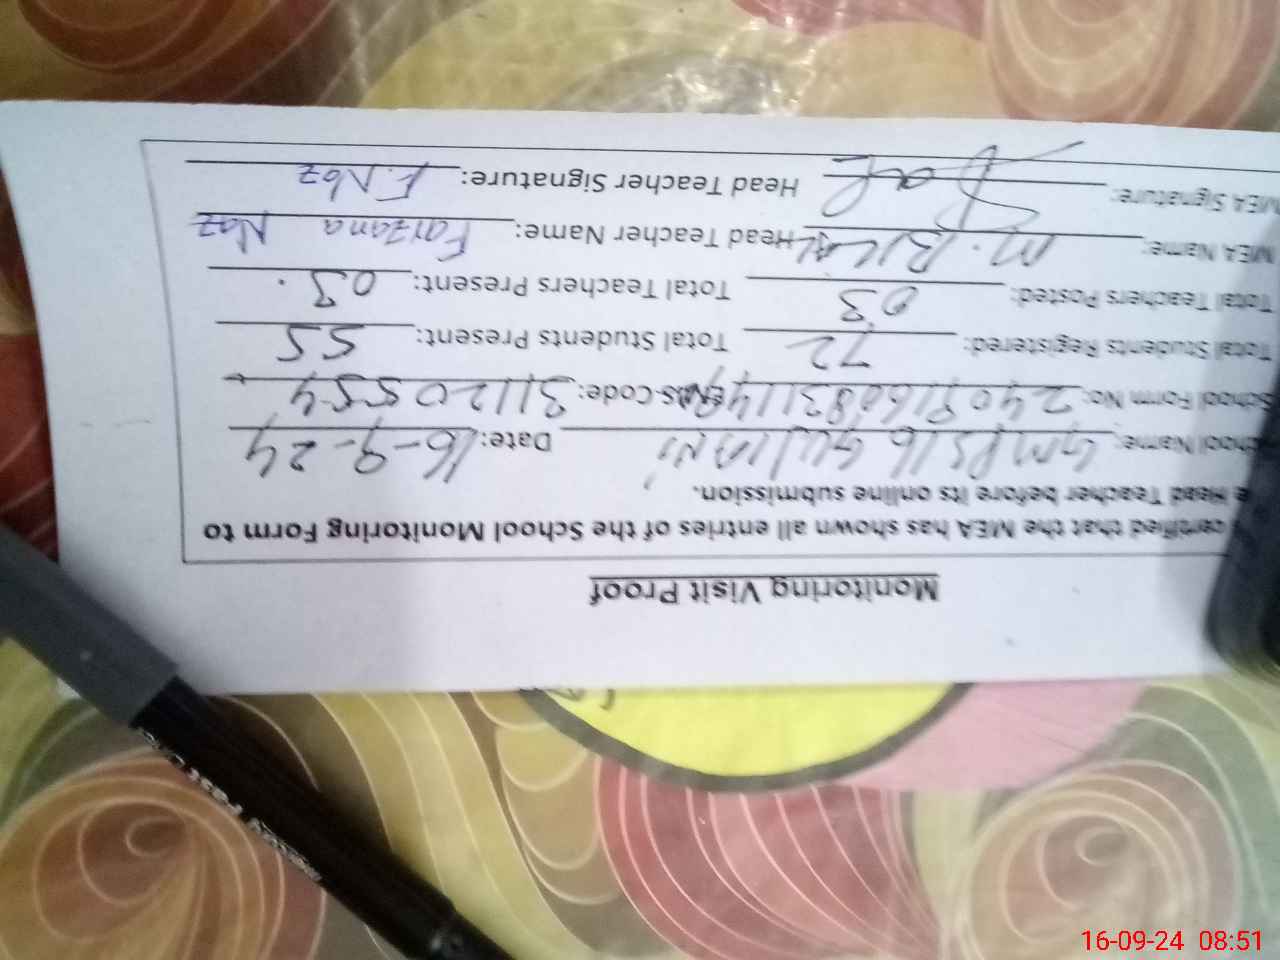 Monitoring Visit Proof
certified that the MEA has shown all entries of the School Monitoring Form to
Head Teacher before its online submission.
School Name: GMPS 16 Date: 16-9-24
School Form No: EMIS Code: 31120554
Total Students Registered: 72 Total Students Present: 55
Total Teachers Posted: 03 Total Teachers Present: 03.
MEA Name: M. BILAL Head Teacher Name: Farzana Naz
MEA Signature: Head Teacher Signature: F.Naz
16-09-24 08:51